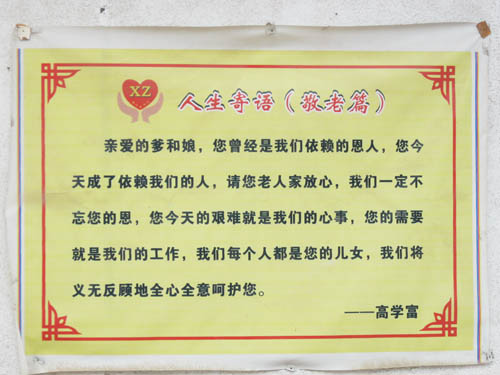 XZ
人生寄语（敬老篇）
亲爱的爹和娘，您曾经是我们依赖的恩人，您今
天成了依赖我们的人，请您老人家放心，我们一定不
忘您的恩，您今天的艰难就是我们的心事，您的需要
就是我们的工作，我们每个人都是您的儿女，我们将
义无反顾地全心全意呵护您。
——高学富